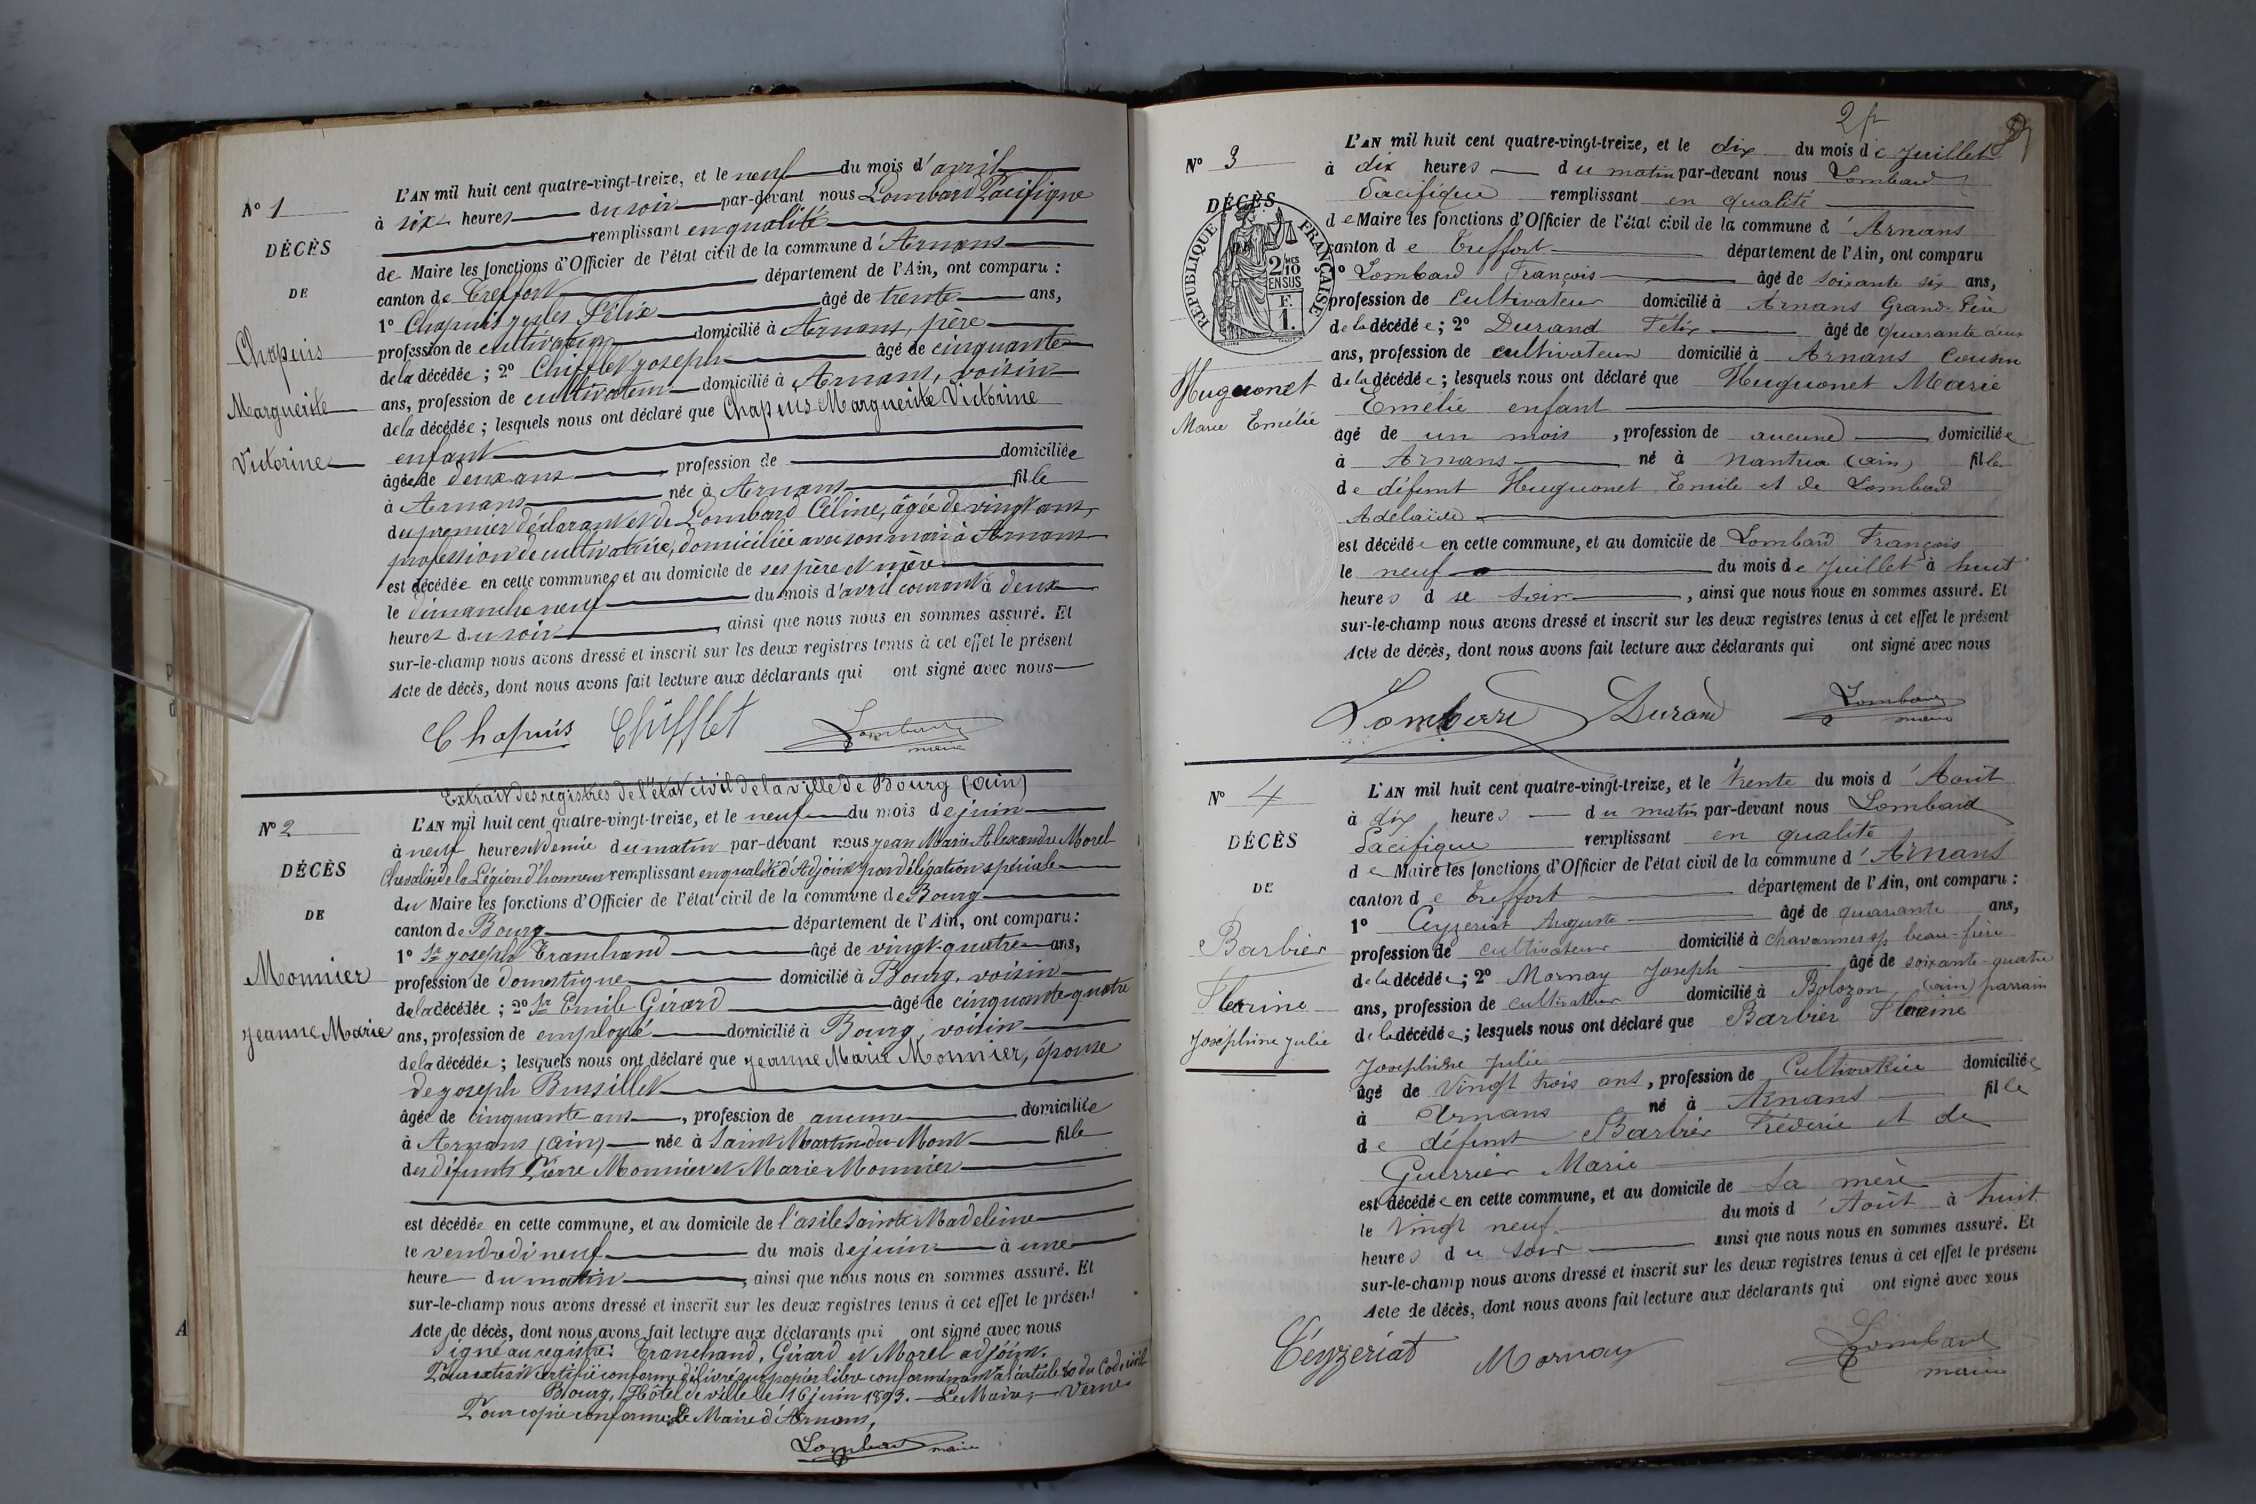 N° 1
DÉCÈS
DE
Chapuis
Marguerite
Victorine
L'AN mil huit cent quatre-vingt-treize, et le neuf du mois d'avril
à six heures du soir par-devant nous Lombard Pacifique
remplissant en qualité
de Maire les fonctions d'Officier de l'état civil de la commune d'Arnans
canton de Treffort département de l'Ain, ont comparu :
1° Chapuis Jules Félix âgé de trente ans,
profession de cultivateur domicilié à Arnans, père
de la décédée ; 2° Chifflet Joseph âgé de cinquante
ans, profession de cultivateur domicilié à Arnans, voisin
de la décédée ; lesquels nous ont déclaré que Chapuis Marguerite Victorine
enfant
âgée de deux ans , profession de domiciliée
à Arnans née à Arnans fille
du premier déclarant et de Lombard Céline, âgée de vingt ans,
profession de cultivatrice, domiciliée avec son mari à Arnans
est décédée en cette commune, et au domicile de ses père et mère
le dimanche neuf du mois d'avril courant à deux
heures du soir , ainsi que nous nous en sommes assuré. Et
sur-le-champ nous avons dressé et inscrit sur les deux registres tenus à cet effet le présent
Acte de décès, dont nous avons fait lecture aux déclarants qui ont signé avec nous
Chapuis Chifflet Lombard
maire
Extrait des registres de l'état civil de la ville de Bourg (Ain)
N° 2
DÉCÈS
DE
Monnier
Jeanne Marie
L'AN mil huit cent quatre-vingt-treize, et le neuf du mois de juin
à neuf heures et demie du matin par-devant nous Jean Marie Alexandre Morel
Chevalier de la Légion d'honneur remplissant en qualité d'Adjoint par délégation spéciale
du Maire les fonctions d'Officier de l'état civil de la commune de Bourg
canton de Bourg département de l'Ain, ont comparu :
1° Sr Joseph Tranchand âgé de vingt-quatre ans,
profession de domestique domicilié à Bourg, voisin
de la décédée ; 2° Sr Emile Girard âgé de cinquante-quatre
ans, profession de employé domicilié à Bourg, voisin
de la décédée ; lesquels nous ont déclaré que Jeanne Marie Monnier, épouse
de Joseph Bussillet
âgée de cinquante ans , profession de aucune domiciliée
à Arnans (Ain) née à Saint Martin-du-Mont fille
des défunts Pierre Monnier et Marie Monnier
est décédée en cette commune, et au domicile de l'asile Sainte Madeleine
le vendredi neuf du mois de juin à une
heure du matin , ainsi que nous nous en sommes assuré. Et
sur-le-champ nous avons dressé et inscrit sur les deux registres tenus à cet effet le présent
Acte de décès, dont nous avons fait lecture aux déclarants qui ont signé avec nous
Signé au registre : Tranchand, Girard et Morel adjoint.
Pour extrait certifié conforme délivré sur papier libre conformément à l'article 80 du Code civil
Bourg, Hôtel de ville le 16 juin 1893. Le Maire, Verne
Pour copie conforme : Le Maire d'Arnans,
Lombard maire
2
N° 3
DÉCÈS
DE
RÉPUBLIQUE FRANÇAISE
2/10 MES
EN SUS
F.
1.
Huguonet
Marie Emélie
L'AN mil huit cent quatre-vingt-treize, et le dix du mois de Juillet
à dix heures du matin par-devant nous Lombard
Pacifique remplissant en qualité
de Maire les fonctions d'Officier de l'état civil de la commune d'Arnans
canton de Treffort département de l'Ain, ont comparu
1° Lombard François âgé de soixante six ans,
profession de Cultivateur domicilié à Arnans Grand-Père
de la décédée ; 2° Durand Félix âgé de quarante deux
ans, profession de cultivateur domicilié à Arnans Cousin
de la décédée ; lesquels nous ont déclaré que Huguonet Marie
Emélie enfant
âgé de un mois , profession de aucune domiciliée
à Arnans né à Nantua (Ain) fille
de défunt Huguonet Emile et de Lombard
Adélaïde
est décédée en cette commune, et au domicile de Lombard François
le neuf du mois de Juillet à huit
heures d se soir , ainsi que nous nous en sommes assuré. Et
sur-le-champ nous avons dressé et inscrit sur les deux registres tenus à cet effet le présent
Acte de décès, dont nous avons fait lecture aux déclarants qui ont signé avec nous
Durand Lombard
maire
N° 4
DÉCÈS
DE
Barbier
Florine
Joséphine Julie
L'AN mil huit cent quatre-vingt-treize, et le trente du mois d'Août
à dix heures du matin par-devant nous Lombard
Pacifique remplissant en qualité
de Maire les fonctions d'Officier de l'état civil de la commune d'Arnans
canton de Treffort département de l'Ain, ont comparu :
1° Ceyzeriat Auguste âgé de quarante ans,
profession de cultivateur domicilié à Chavannes s/s beau-frère
de la décédée ; 2° Mornay Joseph âgé de soixante-quatre
ans, profession de cultivateur domicilié à Bolozon (Ain) parrain
de la décédée ; lesquels nous ont déclaré que Barbier Florine
Joséphine Julie
âgé de Vingt trois ans , profession de Cultivatrice domiciliée
à Arnans né à Arnans fille
de défunt Barbier Fréderic et de
Guerrier Marie
est décédée en cette commune, et au domicile de sa mère
le Vingt neuf du mois d'Août à huit
heures du soir ainsi que nous nous en sommes assuré. Et
sur-le-champ nous avons dressé et inscrit sur les deux registres tenus à cet effet le présent
Acte de décès, dont nous avons fait lecture aux déclarants qui ont signé avec nous
Céyzeriat Mornay Lombard
maire